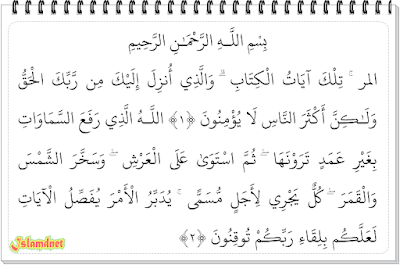 بِسْمِ اللَّـهِ الرَّحْمَـٰنِ الرَّحِيمِ
المر ۚ تِلْكَ آيَاتُ الْكِتَابِ ۗ وَالَّذِي أُنزِلَ إِلَيْكَ مِن رَّبِّكَ الْحَقُّ
وَلَـٰكِنَّ أَكْثَرَ النَّاسِ لَا يُؤْمِنُونَ ﴿١﴾ اللَّـهُ الَّذِي رَفَعَ السَّمَاوَاتِ
بِغَيْرِ عَمَدٍ تَرَوْنَهَا ۖ ثُمَّ اسْتَوَىٰ عَلَى الْعَرْشِ ۖ وَسَخَّرَ الشَّمْسَ
وَالْقَمَرَ ۖ كُلٌّ يَجْرِي لِأَجَلٍ مُّسَمًّى ۚ يُدَبِّرُ الْأَمْرَ يُفَصِّلُ الْآيَاتِ
لَعَلَّكُم بِلِقَاءِ رَبِّكُمْ تُوقِنُونَ ﴿٢﴾
Islamdnet